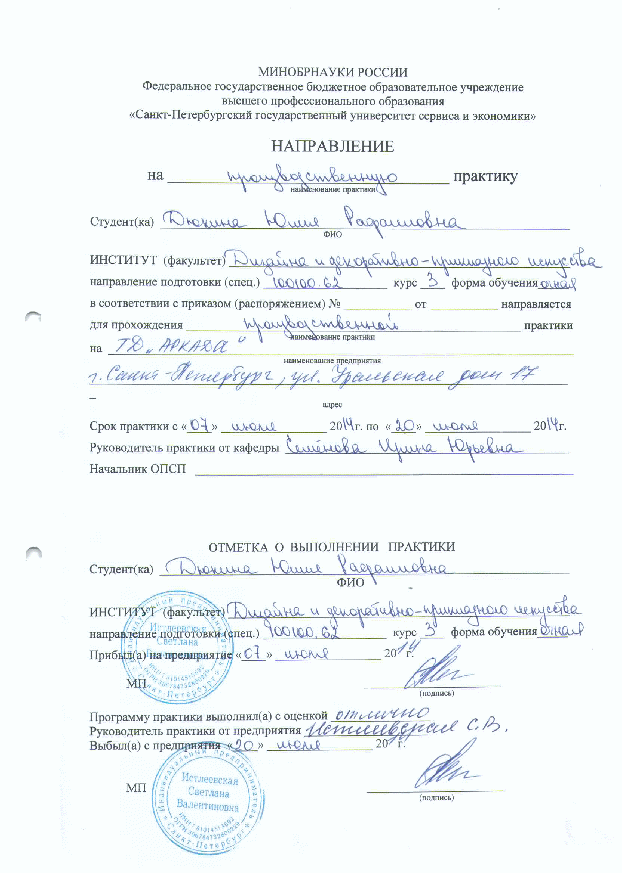 МИНОБРНАУКИ РОССИИ
Федеральное государственное бюджетное образовательное учреждение
высшего профессионального образования
«Санкт-Петербургский государственный университет сервиса и экономики»
НАПРАВЛЕНИЕ
на производственную практику
наименование практики
Студент(ка) Дюкина Юлия Рафаиловна
ФИО
ИНСТИТУТ (факультет) Дизайна и декоративно-прикладного искусства
направление подготовки (спец.) 100100.62 курс 3 форма обучения очная
в соответствии с приказом (распоряжением) № ____ от ____ направляется
для прохождения производственной практики
наименование практики
на ТД "АРКАДА"
наименование предприятия
г. Санкт-Петербург, ул. Уральская дом 17
адрес
Срок практики с «07» июля 2014г. по «20» июля 2014г.
Руководитель практики от кафедры Семёнова Ирина Юрьевна
Начальник ОПСП
ОТМЕТКА О ВЫПОЛНЕНИИ ПРАКТИКИ
Студент(ка) Дюкина Юлия Рафаиловна
ФИО
ИНСТИТУТ (факультет) Дизайна и декоративно-прикладного искусства
направление подготовки (спец.) 100100.62 курс 3 форма обучения очная
Прибыл(а) на предприятие «07» июля 2014 г.
МП
(подпись)
Программу практики выполнил(а) с оценкой отлично
Руководитель практики от предприятия Истлеевская С.В.
Выбыл(а) с предприятия «20» июля 20 г.
МП
(подпись)
Индивидуальный предприниматель
Истлеевская
Светлана
Валентиновна
Санкт-Петербург